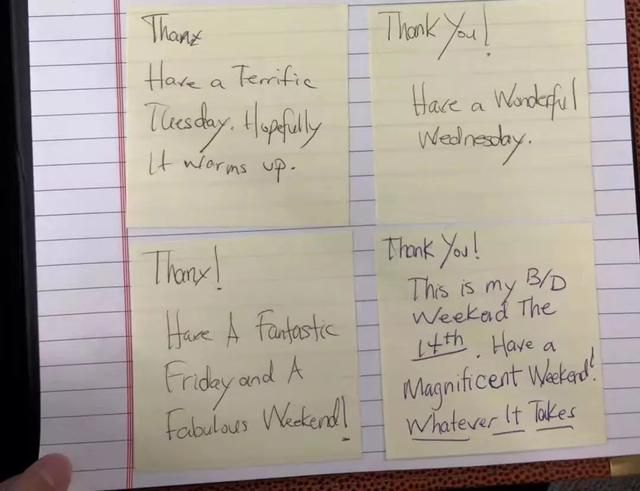 Thanx
Have a Terrific
Tuesday. Hopefully
It warms up.
Thank You!
Have a Wonderful
Wednesday.
Thanx!
Have A Fantastic
Friday and A
Fabulous Weekend!
Thank You!
This is my B/D
Weekend The
14th. Have a
Magnificent Weekend!
Whatever It Takes